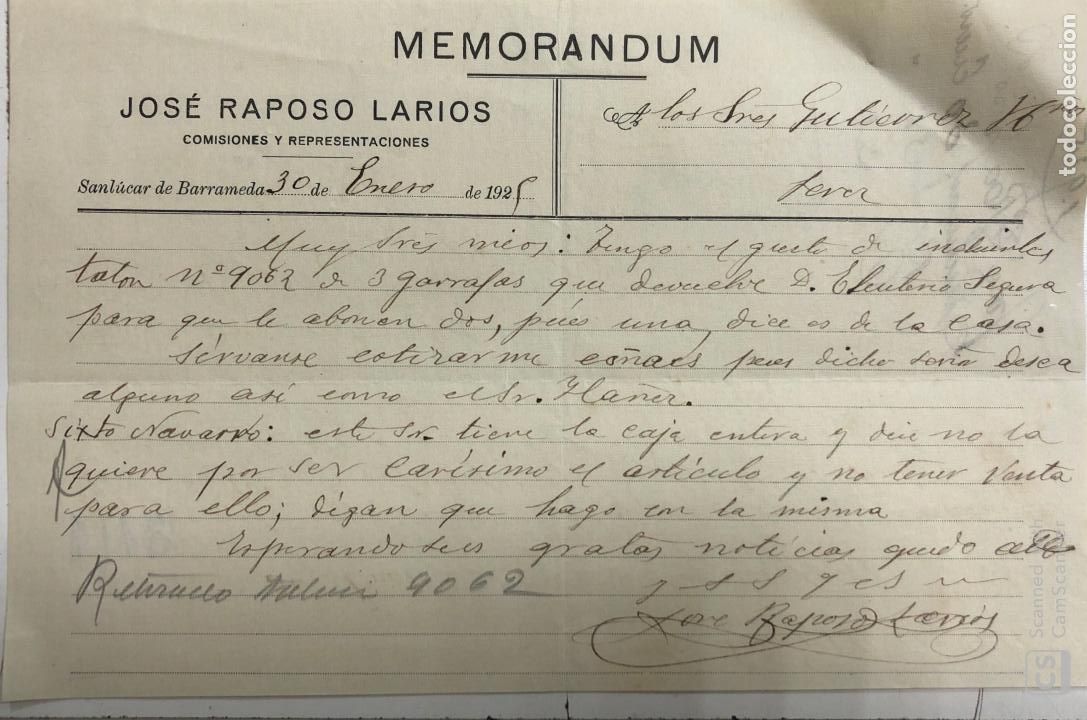 MEMORANDUM
JOSÉ RAPOSO LARIOS
COMISIONES Y REPRESENTACIONES
Sanlúcar de Barrameda 30 de Enero de 1925
A los Sres Gutiérrez Hnos
Jerez
Muy Sres mios: Tengo el gusto de incluirles
talon nº 9062 de 3 garrafas que devuelve D. Eleuterio Segura
para que le abonen dos, pues una, dice es de la casa.
Sérvanse cotizarme coñacs pues dicho señor desea
alguno asi como el Sr.
Sixto Navarro: este Sr. tiene la caja entera y dice no la
quiere por ser carísimo el artículo y no tener venta
para ello; digan que hago con la misma
Esperando sus gratas noticias quedo
José Raposo Larios
9062
todocoleccion
Scanned with
CamScanner
CS